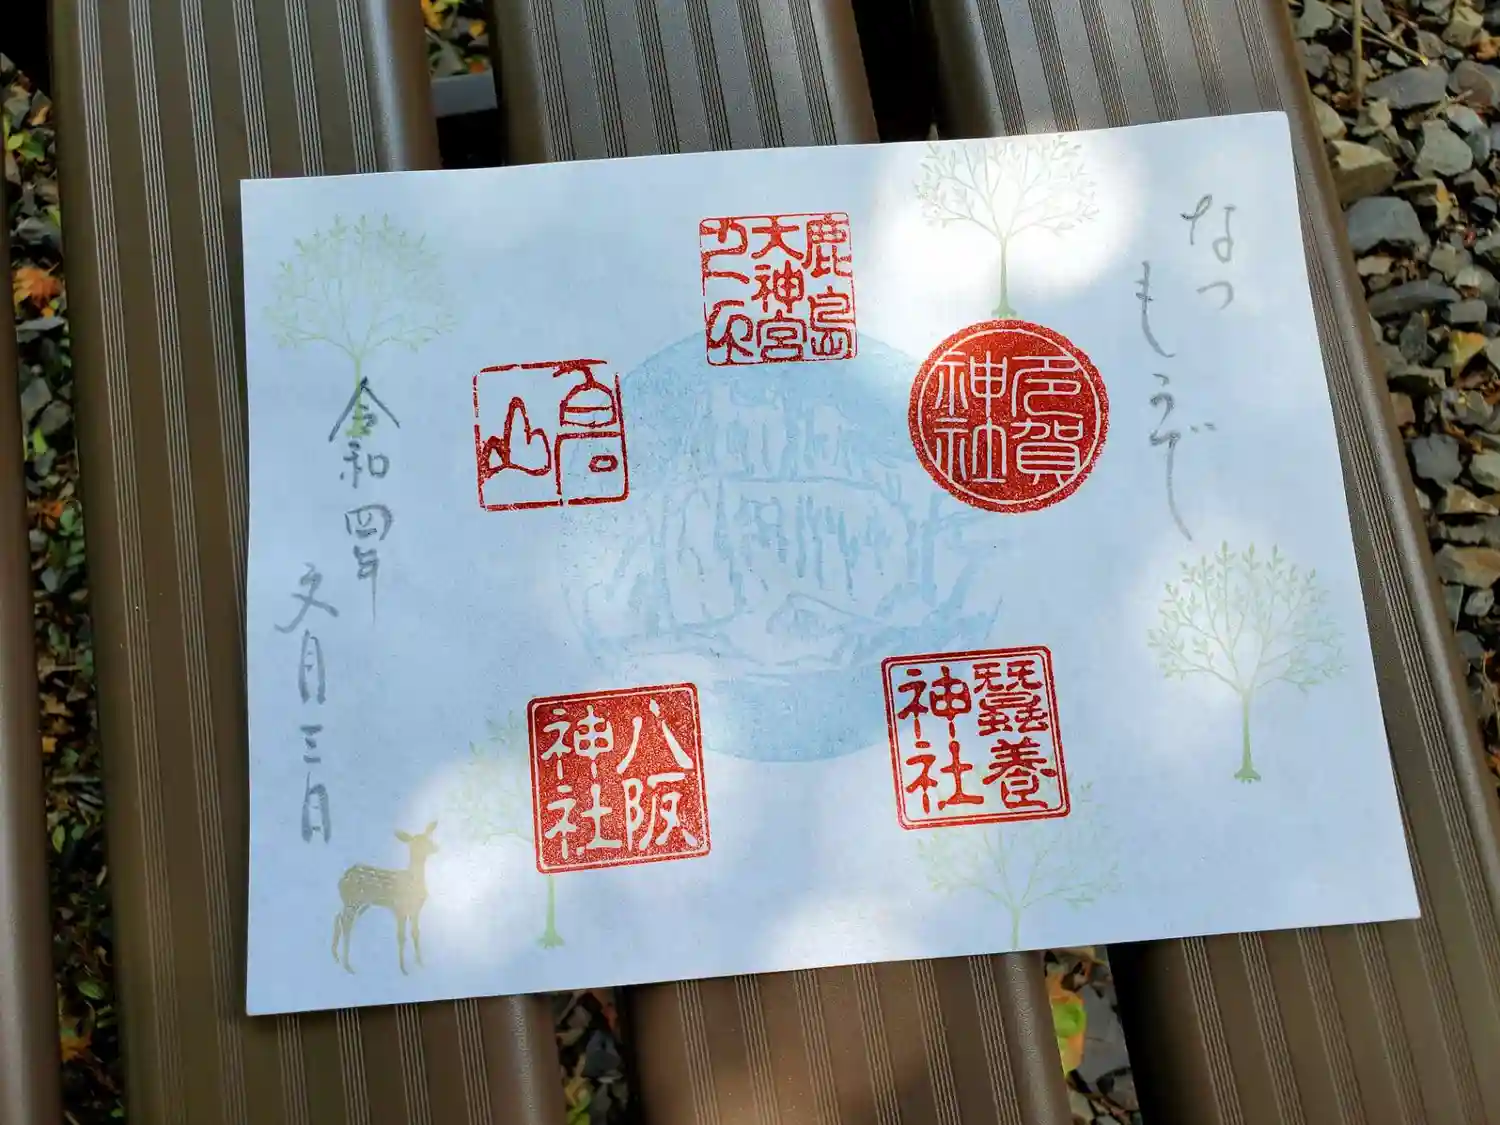 なつ
もうで
多賀
神社
鹿島
大神宮
蠶養
神社
八阪
神社
令和四年
文月三日